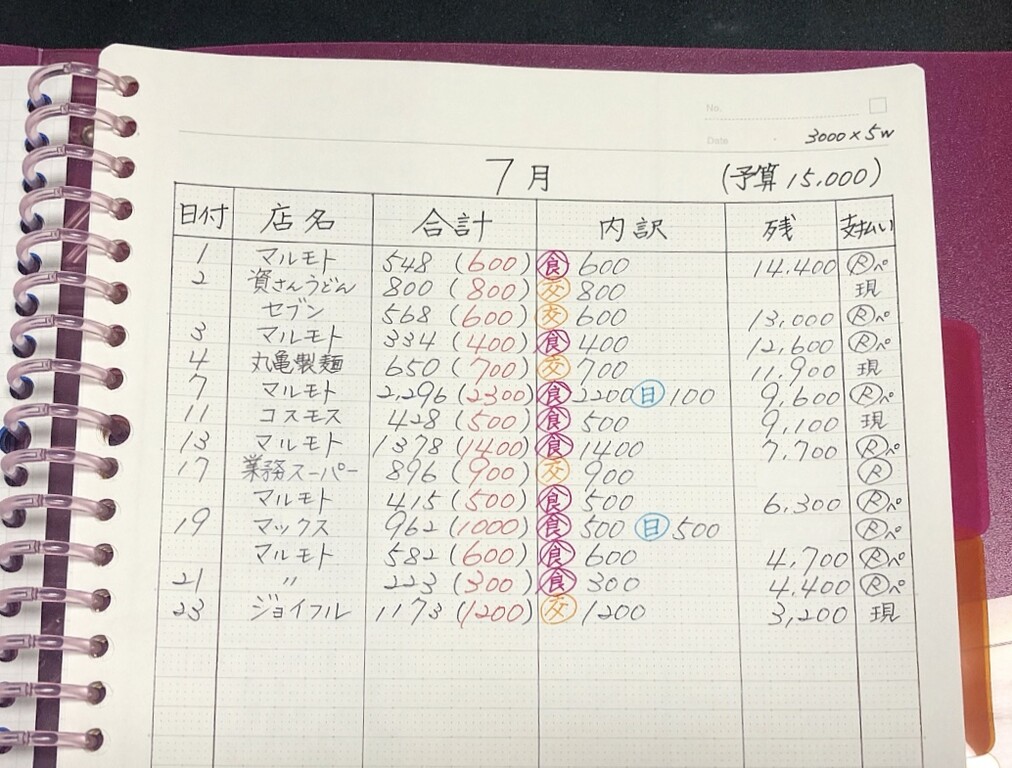 No.
Date
3000×5w
7月 (予算 15,000)
日付 店名 合計 内訳 残 支払い
1 マルモト 548 (600) 食 600 14,400 Rペ
2 資さんうどん 800 (800) 交 800 現
セブン 568 (600) 交 600 13,000 Rペ
3 マルモト 334 (400) 食 400 12,600 Rペ
4 丸亀製麺 650 (700) 交 700 11,900 現
7 マルモト 2,296 (2300) 食 2200 日 100 9,600 Rペ
11 コスモス 428 (500) 食 500 9,100 現
13 マルモト 1378 (1400) 食 1400 7,700 Rペ
17 業務スーパー 896 (900) 交 900 R
マルモト 415 (500) 食 500 6,300 Rペ
19 マックス 962 (1000) 食 500 日 500 Rペ
マルモト 582 (600) 食 600 4,700 Rペ
21 〃 223 (300) 食 300 4,400 Rペ
23 ジョイフル 1173 (1200) 交 1200 3,200 現